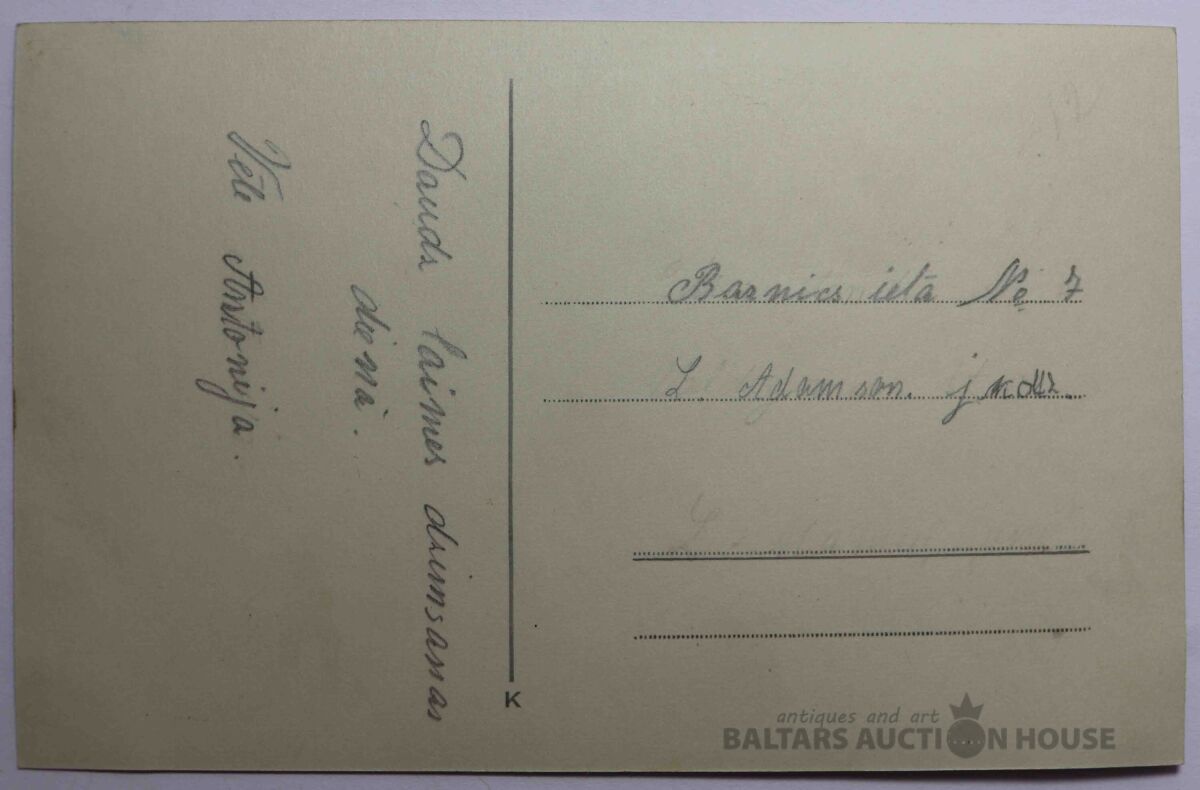 Daudz laimes dzimšanas
dienā.
Vēlē Antonija.
Baznics ielā № 7
L. Adamson. j kdz.
K
antiques and art
BALTARS AUCTION HOUSE